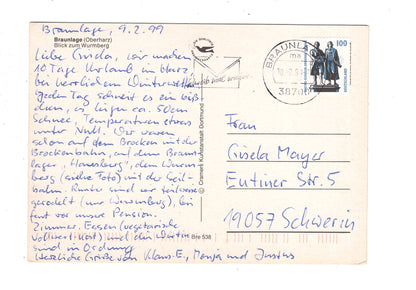 Braunlage, 9.2.99
Braunlage (Oberharz)
Blick zum Wurmberg
Liebe Gisela, wir machen
10 Tage Urlaub im Harz,
bei herrlichem Winterwetter.
Jeden Tag schneit es ein biß
chen, es liegen ca. 50cm
Schnee, Temperaturen etwas
unter Null. Wir waren
schon auf dem Brocken mit der
Brockenbahn, auf dem Braun-
lager "Hexenberg", dem Wurm-
berg (siehe Foto) mit der Seil-
bahn. Runter sind wir teilweise
gerodelt (vom Wurmberg), bis
fast vor unsere Pension.
Zimmer, Essen (vegetarische
Vollwert-Kost) und die Wirtin
sind in Ordnung.
Herzliche Grüße von Klaus-E,
© Cramers Kunstanstalt Dortmund
Bre 538
BRAUNLA
38700
100
DEUTSCHLAND
Frau
Gisela Mayer
Eutiner Str. 5
19057 Schwerin